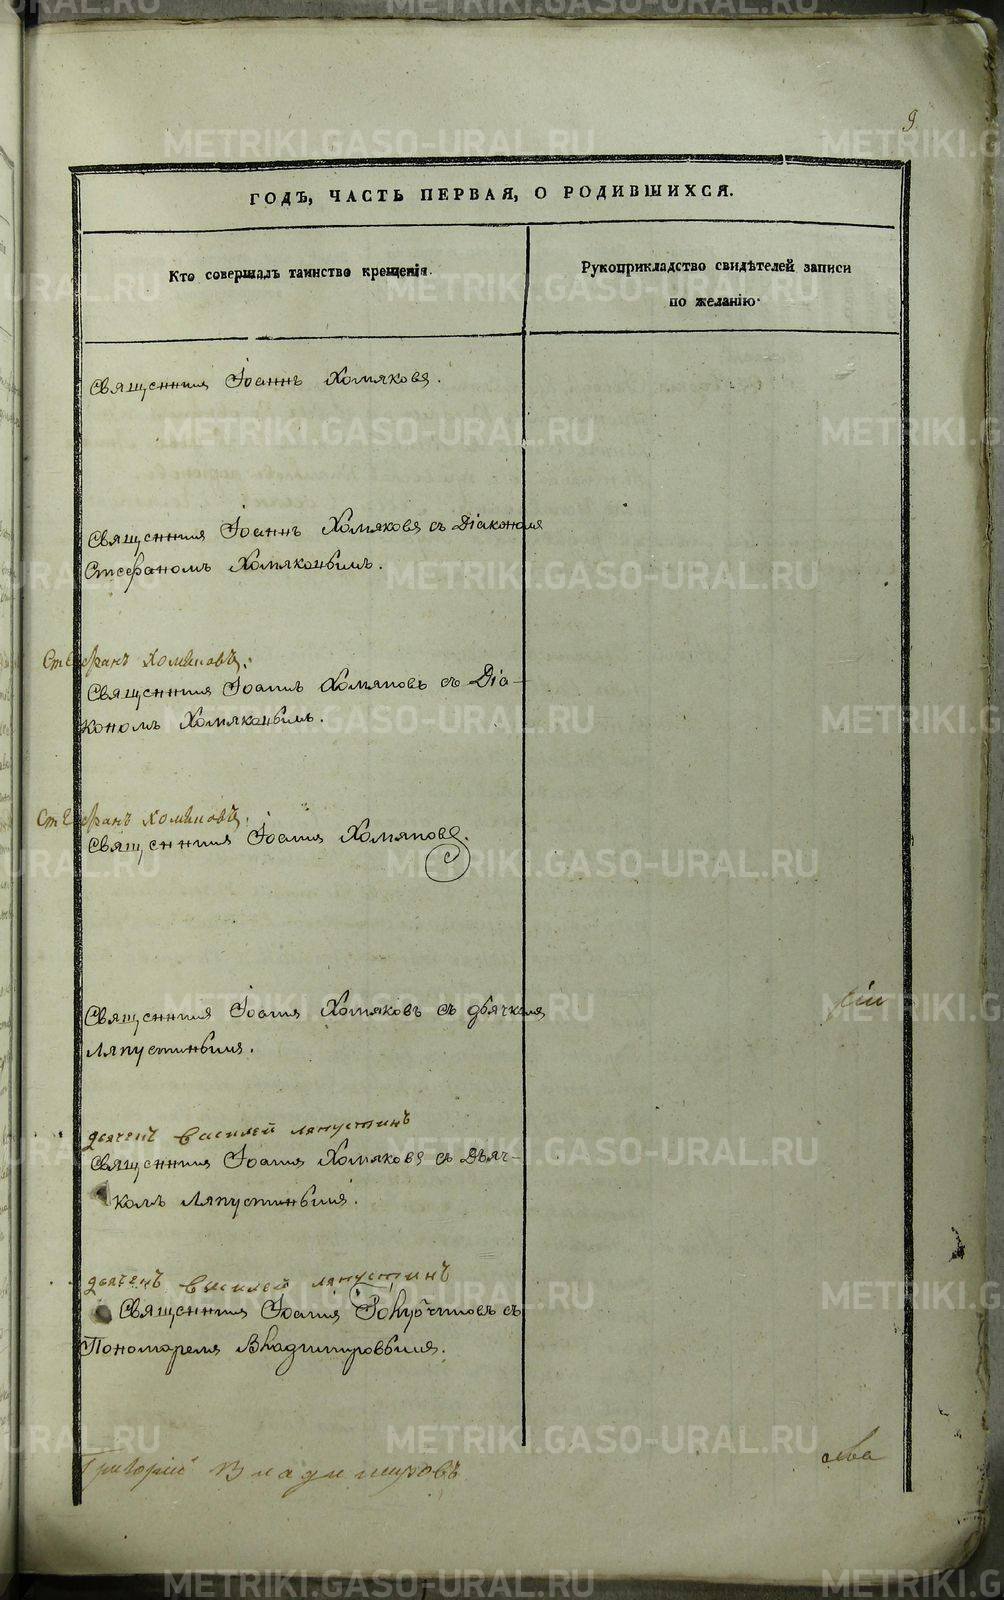 9
ГОДЪ, ЧАСТЬ ПЕРВАЯ, О РОДИВШИХСЯ.
Кто совершалъ таинство крещенія.
Рукоприкладство свидѣтелей записи
по желанію.
Священникъ Іоаннъ Хомяковъ.
Священникъ Іоаннъ Хомяковъ съ Діакономъ
Стефаномъ Хомяковымъ.
Стефанъ Хомяковъ.
Священникъ Іоаннъ Хомяковъ съ Діа-
кономъ Хомяковымъ.
Стефанъ Хомяковъ.
Священникъ Іоаннъ Хомяковъ.
Священникъ Іоаннъ Хомяковъ съ дьячкомъ
Ляпустинымъ.
дьячекъ Василей Ляпустинъ
Священникъ Іоаннъ Хомяковъ съ Дьяч-
комъ Ляпустинымъ.
дьячекъ Василей Ляпустинъ
Священникъ Іоаннъ съ
Пономаремъ Владимировымъ.
Григорий Владимировъ
METRIKI.GASO-URAL.RU